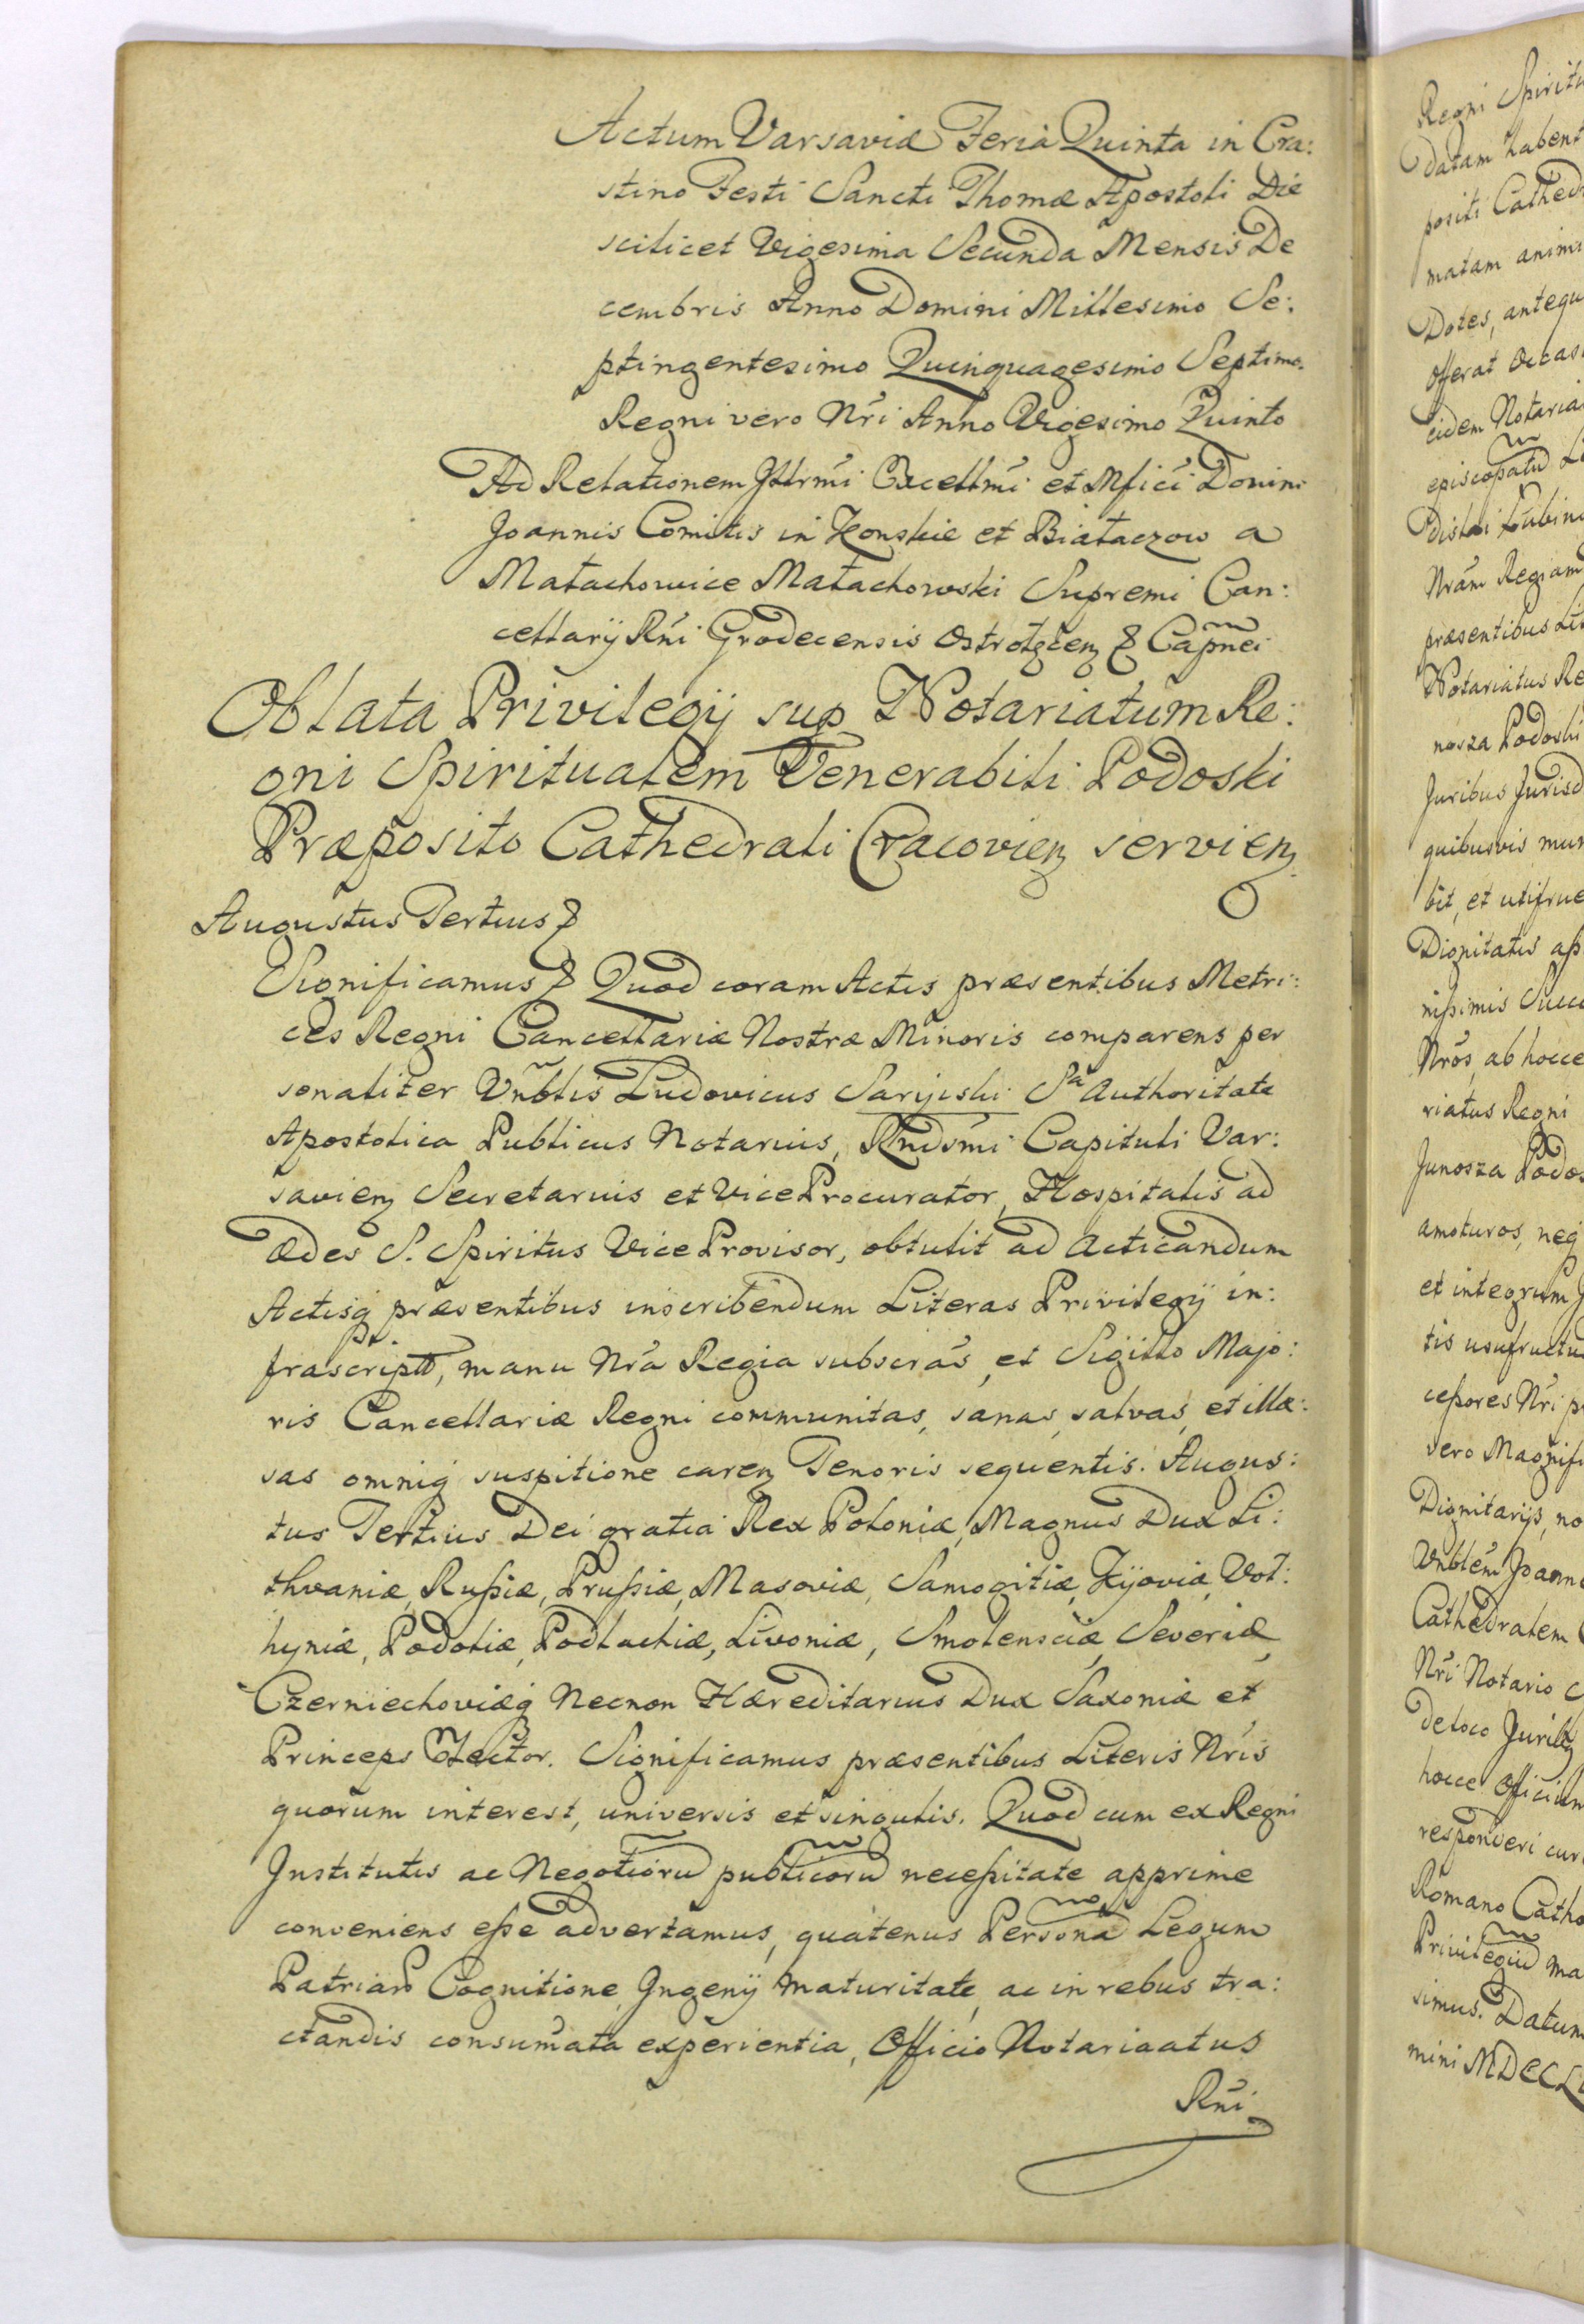 Actum Varsaviæ Feria Quinta in Cra:
stino Festi Sancti Thomæ Apostoli Die
scilicet Vigesima Secunda Mensis De
cembris Anno Domini Millesimo Se:
ptingentesimo Quinquagesimo Septimo.
Regni vero Nri Anno Vigesimo Quinto
Ad Relationem Jllrmi Excellmi et Mfici Domini
Joannis Comitis in Konskie et Białaczow a
Małachowice Małachowski Supremi Can:
cellarij Rni Grodecensis Ostrołęcen & Capnei
Oblata Privilegij sup Notariatum Re:
gni Spiritualem Venerabili Podoski
Præposito Cathedrali Cracovien servien
Augustus Tertius &
Significamus & Quod coram Actis præsentibus Metri:
ces Regni Cancellariæ Nostræ Minoris comparens per
sonaliter Vnblis Ludovicus Saryiski Sa Authoritate
Apostolica Publicus Notarius, Rndsmi Capituli Var:
savien Secretarius et Vice Procurator, Hospitalis ad
Ædes S. Spiritus Vice Provisor, obtulit ad Acticandum
Actisq præsentibus inscribendum Literas Privilegij in:
frascripti, manu Nra Regia subscras, et Sigillo Majo:
ris Cancellariæ Regni communitas, sanas, salvas, et illæ:
sas omniq suspitione caren Tenoris sequentis. Augus:
tus Tertius Dei gratia Rex Poloniæ, Magnus Dux Li:
thvaniæ, Russiæ, Prussiæ, Masoviæ, Samogitiæ, Kijoviæ, Vol:
hyniæ, Podoliæ, Podlachiæ, Livoniæ, Smolensciæ, Severiæ,
Czerniechoviæq Necnon Hæreditarius Dux Saxoniæ et
Princeps Elector. Significamus præsentibus Literis Nris
quorum interest, universis et singulis. Quod cum ex Regni
Institutis ac Negotioru publicoru necessitate apprime
conveniens esse advertamus, quatenus Persona Legum
Patriar Cognitione, Jngenij Maturitate, ac in rebus tra:
ctandis consumata experientia, Officio Notariaatus
Rni
Regni Spiritu
datam habent
positi Cathed
matam animi
Dotes, antequ
offerat occasi
eidem Notaria
episcopatu
Nram Regiam
præsentibus Lit
Notariatus Re
nosza Podoski
Juribus Jurisd
quibusvis mun
bit, et utifrue
Dignitatis
nissimis Succe
Nros, ab hocce
riatus Regni
Junosza Podos
amoturos, neq
et integrum J
tis usufructu
cessores Nri p
vero Magnifi
Dignitarijs, no
Vnblem Joann
Cathedralem
Nri Notario
de loco Juribq
hocce Officium
responderi cur
Romano Catho
Privilegiu ma
simus. Datum
mini MDCCL